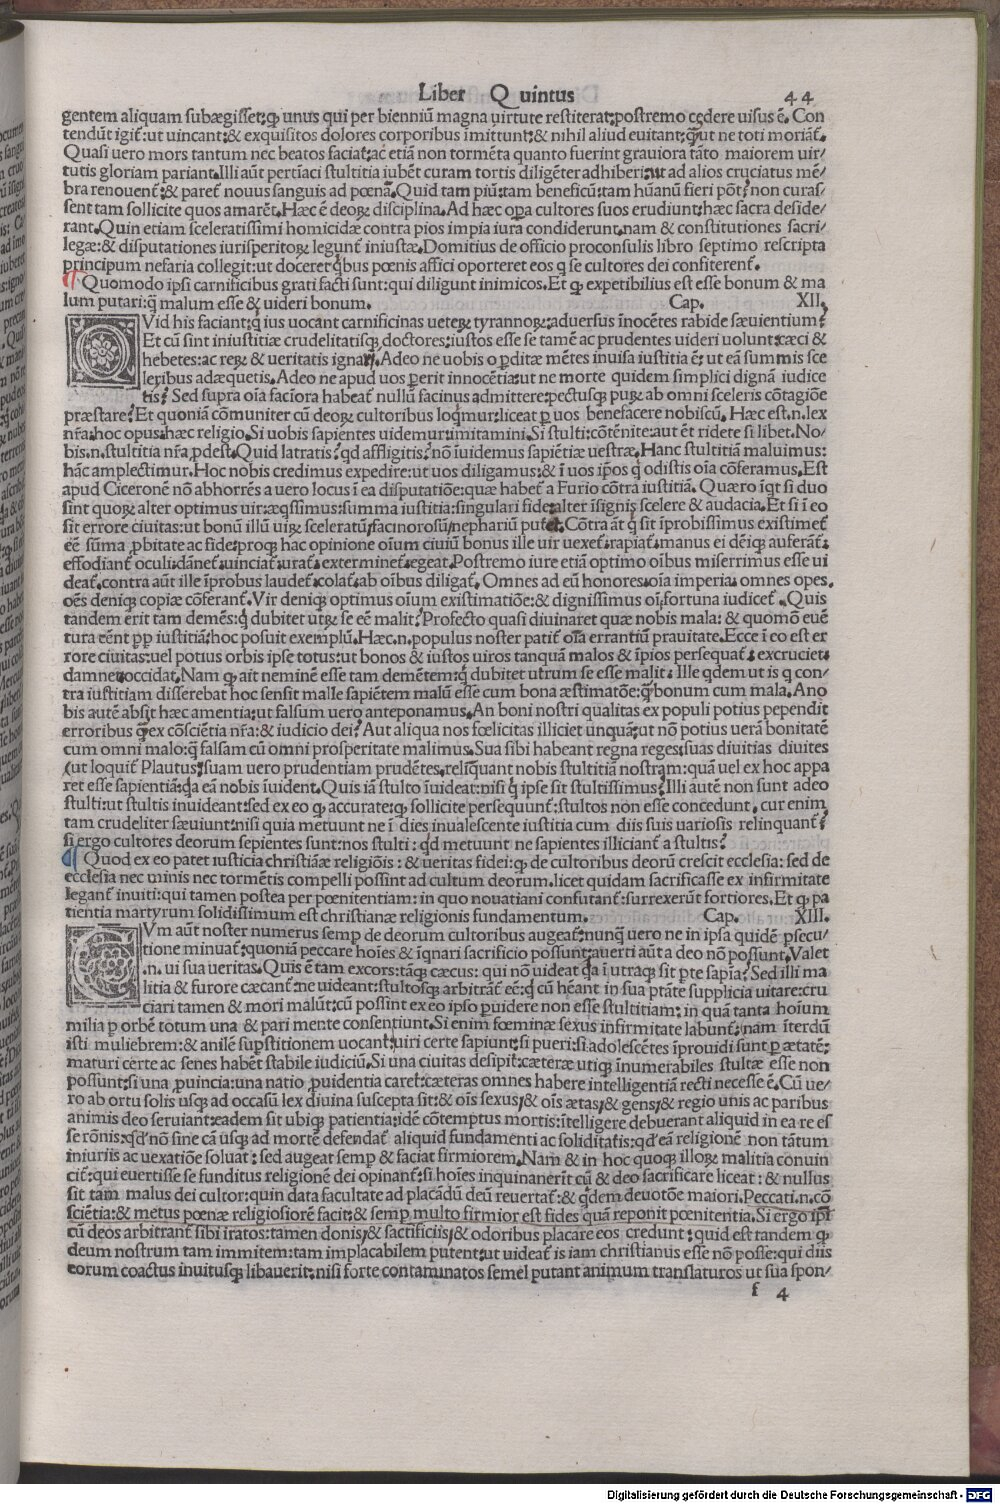 Liber Quintus 44
gentem aliquam subægisset: ꝙ unus qui per bienniū magna uirtute restiterat: postremo cedere uisus ē. Con
tendūt igit̄: ut uincant: & exquisitos dolores corporibus īmittunt: & nihil aliud euitant: ꝗ̄ ut ne toti moriāt̄.
Quasi uero mors tantum nec beatos faciat: ac etiā non tormēta quanto fuerint grauiora tāto maiorem uir/
tutis gloriam pariant. Illi aūt pertiaci stultitia iubēt curam tortis diligēter adhiberi: ut ad alios cruciatus mē/
bra renouent̄: & paret̄ nouus sanguis ad pœnā. Quid tam piū: tam beneficū: tam hūanū fieri pōt̄: non curas/
sent tam sollicite quos amarēt. Hæc ē deoꝝ disciplina. Ad hæc oꝑa cultores suos erudiunt: hæc sacra deside/
rant. Quin etiam sceleratissimi homicidæ contra pios impia iura condiderunt. nam & constitutiones sacri/
legæ: & disputationes iurisperitoꝝ legunt̄ iniustæ. Domitius de officio proconsulis libro septimo rescripta
principum nefaria collegit: ut doceret ꝗbus pœnis affici oporteret eos ꝗ se cultores dei confiterent̄.
Quomodo ipsi carnificibus grati facti sunt: qui diligunt inimicos. Et ꝙ expetibilius est esse bonum & ma
lum putari: ꝗ̄ malum esse & uideri bonum. Cap. XII.
QVid his faciant: ꝗ ius uocant carnificinas ueteꝝ tyrannoꝝ: aduersus īnocētes rabide sæuientium?
Et cū sint iniustitiæ crudelitatisꝗ doctores: iustos esse se tamē ac prudentes uideri uolunt: cæci &
hebetes: ac reꝝ & ueritatis ignari. Adeo ne uobis o ꝑditæ mētes inuisa iustitia ē: ut eā summis sce
leribus adæquetis. Adeo ne apud uos ꝑerit innocētia: ut ne morte quidem simplici dignā iudice
tis? Sed supra oīa faciora habeat̄ nullū facinus admittere: pectusꝗ puꝝ ab omni sceleris cōtagiōe
præstare? Et quoniā cōmuniter cū deoꝝ cultoribus loꝗmur: liceat ꝑ uos benefacere nobiscū. Hæc est .n. lex
nr̄a. hoc opus: hæc religio. Si uobis sapientes uidemur: imitamini. Si stulti: cōtēnite: aut ēt ridete si libet. No/
bis .n. stultitia nr̄a ꝓdest. Quid latratis? qd affligitis? nō īuidemus sapiētiæ uestræ. Hanc stultitiā maluimus:
hāc amplectimur. Hoc nobis credimus expedire: ut uos diligamus: & ī uos ip̄os ꝗ odistis oīa cōferamus. Est
apud Ciceronē nō abhorrēs a uero locus ī ea disputatiōe: quæ habet̄ a Furio cōtra iustitiā. Quæro īqt si duo
sint quoꝝ alter optimus uir: æqssimus: summa iustitia: singulari fide: alter īsignis scelere & audacia. Et si ī eo
sit errore ciuitas: ut bonū illū uiꝝ sceleratū/ facinorosū/ nephariū putet. Cōtra āt ꝗ sit īprobissimus existimet̄
eē sūma ꝓbitate ac fide: proꝗ hac opinione oīum ciuiū bonus ille uir uexet̄. rapiat̄. manus ei dēiꝗ auferāt̄.
effodiant̄ oculi: dānet̄: uinciat̄: urat̄: exterminet̄: egeat. Postremo iure etiā optimo oībus miserrimus esse ui
deat̄. contra aūt ille īprobus laudet̄. colat̄. ab oībus diligat̄. Omnes ad eū honores: oīa imperia: omnes opes.
oēs deniꝗ copiæ cōferant̄. Vir deniꝗ optimus oīum existimatiōe: & dignissimus oī fortuna iudicet̄. Quis
tandem erit tam demēs: ꝗ dubitet utꝝ se eē malit? Profecto quasi diuinaret quæ nobis mala: & quomō euē
tura eēnt ꝓp iustitiā: hoc posuit exemplū. Hæc .n. populus noster patit̄ oīa errantiū prauitate. Ecce ī eo est er
rore ciuitas: uel potius orbis ipse totus: ut bonos & iustos uiros tanquā malos & īpios persequat̄: excruciet:
damnet: occidat. Nam ꝙ ait neminē esse tam demētem: ꝗ dubitet utrum se esse malit: Ille qdem ut is ꝗ con/
tra iustitiam disserebat hoc sensit malle sapiētem malū esse cum bona æstimatōe: ꝗ̄ bonum cum mala. A no
bis autē absit hæc amentia: ut falsum uero anteponamus. An boni nostri qualitas ex populi potius pependit
erroribus ꝗ̄ ex cōsciētia nr̄a: & iudicio dei? Aut aliqua nos fœlicitas illiciet unquā: ut nō potius uerā bonitatē
cum omni malo: ꝗ̄ falsam cū omni prosperitate malimus. Sua sibi habeant regna reges: suas diuitias diuites
(ut loquit̄ Plautus) suam uero prudentiam prudētes. relīquant nobis stultitiā nostram: quā uel ex hoc appa
ret esse sapientiā: ꝗa eā nobis īuident. Quis iā stulto īuideat: nisi ꝗ ipse sit stultissimus? Illi autē non sunt adeo
stulti: ut stultis inuideant: sed ex eo ꝙ accurate: ꝙ sollicite persequunt̄: stultos non esse concedunt. cur enim
tam crudeliter sæuiunt: nisi quia metuunt ne ī dies inualescente iustitia cum diis suis uariosis relinquant̄?
si ergo cultores deorum sepientes sunt: nos stulti: qd metuunt ne sapientes illiciant̄ a stultis?
Quod ex eo patet iusticia christiāæ religiōis: & ueritas fidei: ꝙ de cultoribus deorū crescit ecclesia: sed de
ecclesia nec minis nec tormētis compelli possint ad cultum deorum. licet quidam sacrificasse ex infirmitate
legant̄ inuiti: qui tamen postea per pœnitentiam: in quo nouatiani confutant̄: surrexerūt fortiores. Et ꝙ pa
tientia martyrum solidissimum est christianæ religionis fundamentum. Cap. XIII.
CVm aūt noster numerus semꝑ de deorum cultoribus augeat̄: nunꝗ̄ uero ne in ipsa quidē ꝑsecu/
tione minuat̄: quoniā peccare hoīes & īqnari sacrificio possunt: auerti aūt a deo nō possunt. Valet
.n. ui sua ueritas. Quis ē tam excors: tāꝗ cæcus: qui nō uideat ꝗa ī utraꝗ sit ꝑte sapīa? Sed illi ma
litia & furore cæcant̄: ne uideant: stultosꝗ arbitrant̄ eē: ꝗ cū hēant in sua ptāte supplicia uitare: cru
ciari tamen & mori malūt: cū possint ex eo ipso ꝑuidere non esse stultitiam: in quā tanta hoīum
milia ꝑ orbē totum una & pari mente consentiunt. Si enim fœminæ sexus infirmitate labunt̄: nam īterdū
isti muliebrem: & anilē suꝑstitionem uocant: uiri certe sapiunt: si pueri: si adolescētes īprouidi sunt ꝑ ætatē:
maturi certe ac senes habēt stabile iudiciū. Si una ciuitas desipit: cæteræ utiꝗ īnumerabiles stultæ esse non
possunt: si una ꝓuincia: una natio ꝓuidentia caret: cæteras omnes habere intelligentiā recti necesse ē. Cū ue/
ro ab ortu solis usꝗ ad occasū lex diuina suscepta sit: & oīs sexus/ & oīs ætas/ & gens/ & regio unis ac paribus
animis deo seruiant: eadem sit ubiꝗ patientia: idē cōtemptus mortis: ītelligere debuerant aliquid in ea re es
se rōnis: qd' nō sine cā usꝗ ad mortē defendat̄ aliquid fundamenti ac soliditatis: qd' eā religionē non tātum
iniuriis ac uexatiōe soluat: sed augeat semꝑ & faciat firmiorem. Nam & in hoc quoꝗ illoꝝ malitia conuin
cit̄: qui euertisse se funditus religionē dei opinant̄: si hoīes inquinanerīt cū & deo sacrificare liceat: & nullus
sit tam malus dei cultor: quin data facultate ad placādū deū reuertat̄: & ꝗdem deuotōe maiori. Peccati .n. cō
sciētia: & metus pœnæ religiosiorē facit: & semꝑ multo firmior est fides quā reponit pœnitentia. Si ergo ip̄i
cū deos arbitrant̄ sibi iratos: tamen donis/ & sacrificiis/ & odoribus placare eos credunt: quid est tandem ꝙ
deum nostrum tam immitem: tam implacabilem putent: ut uideat̄ is iam christianus esse nō posse: qui diis
eorum coactus inuitusꝗ libauerit: nisi forte contaminatos semel putant animum translaturos ut sua spon/
f 4
Digitalisierung gefördert durch die Deutsche Forschungsgemeinschaft - DFG